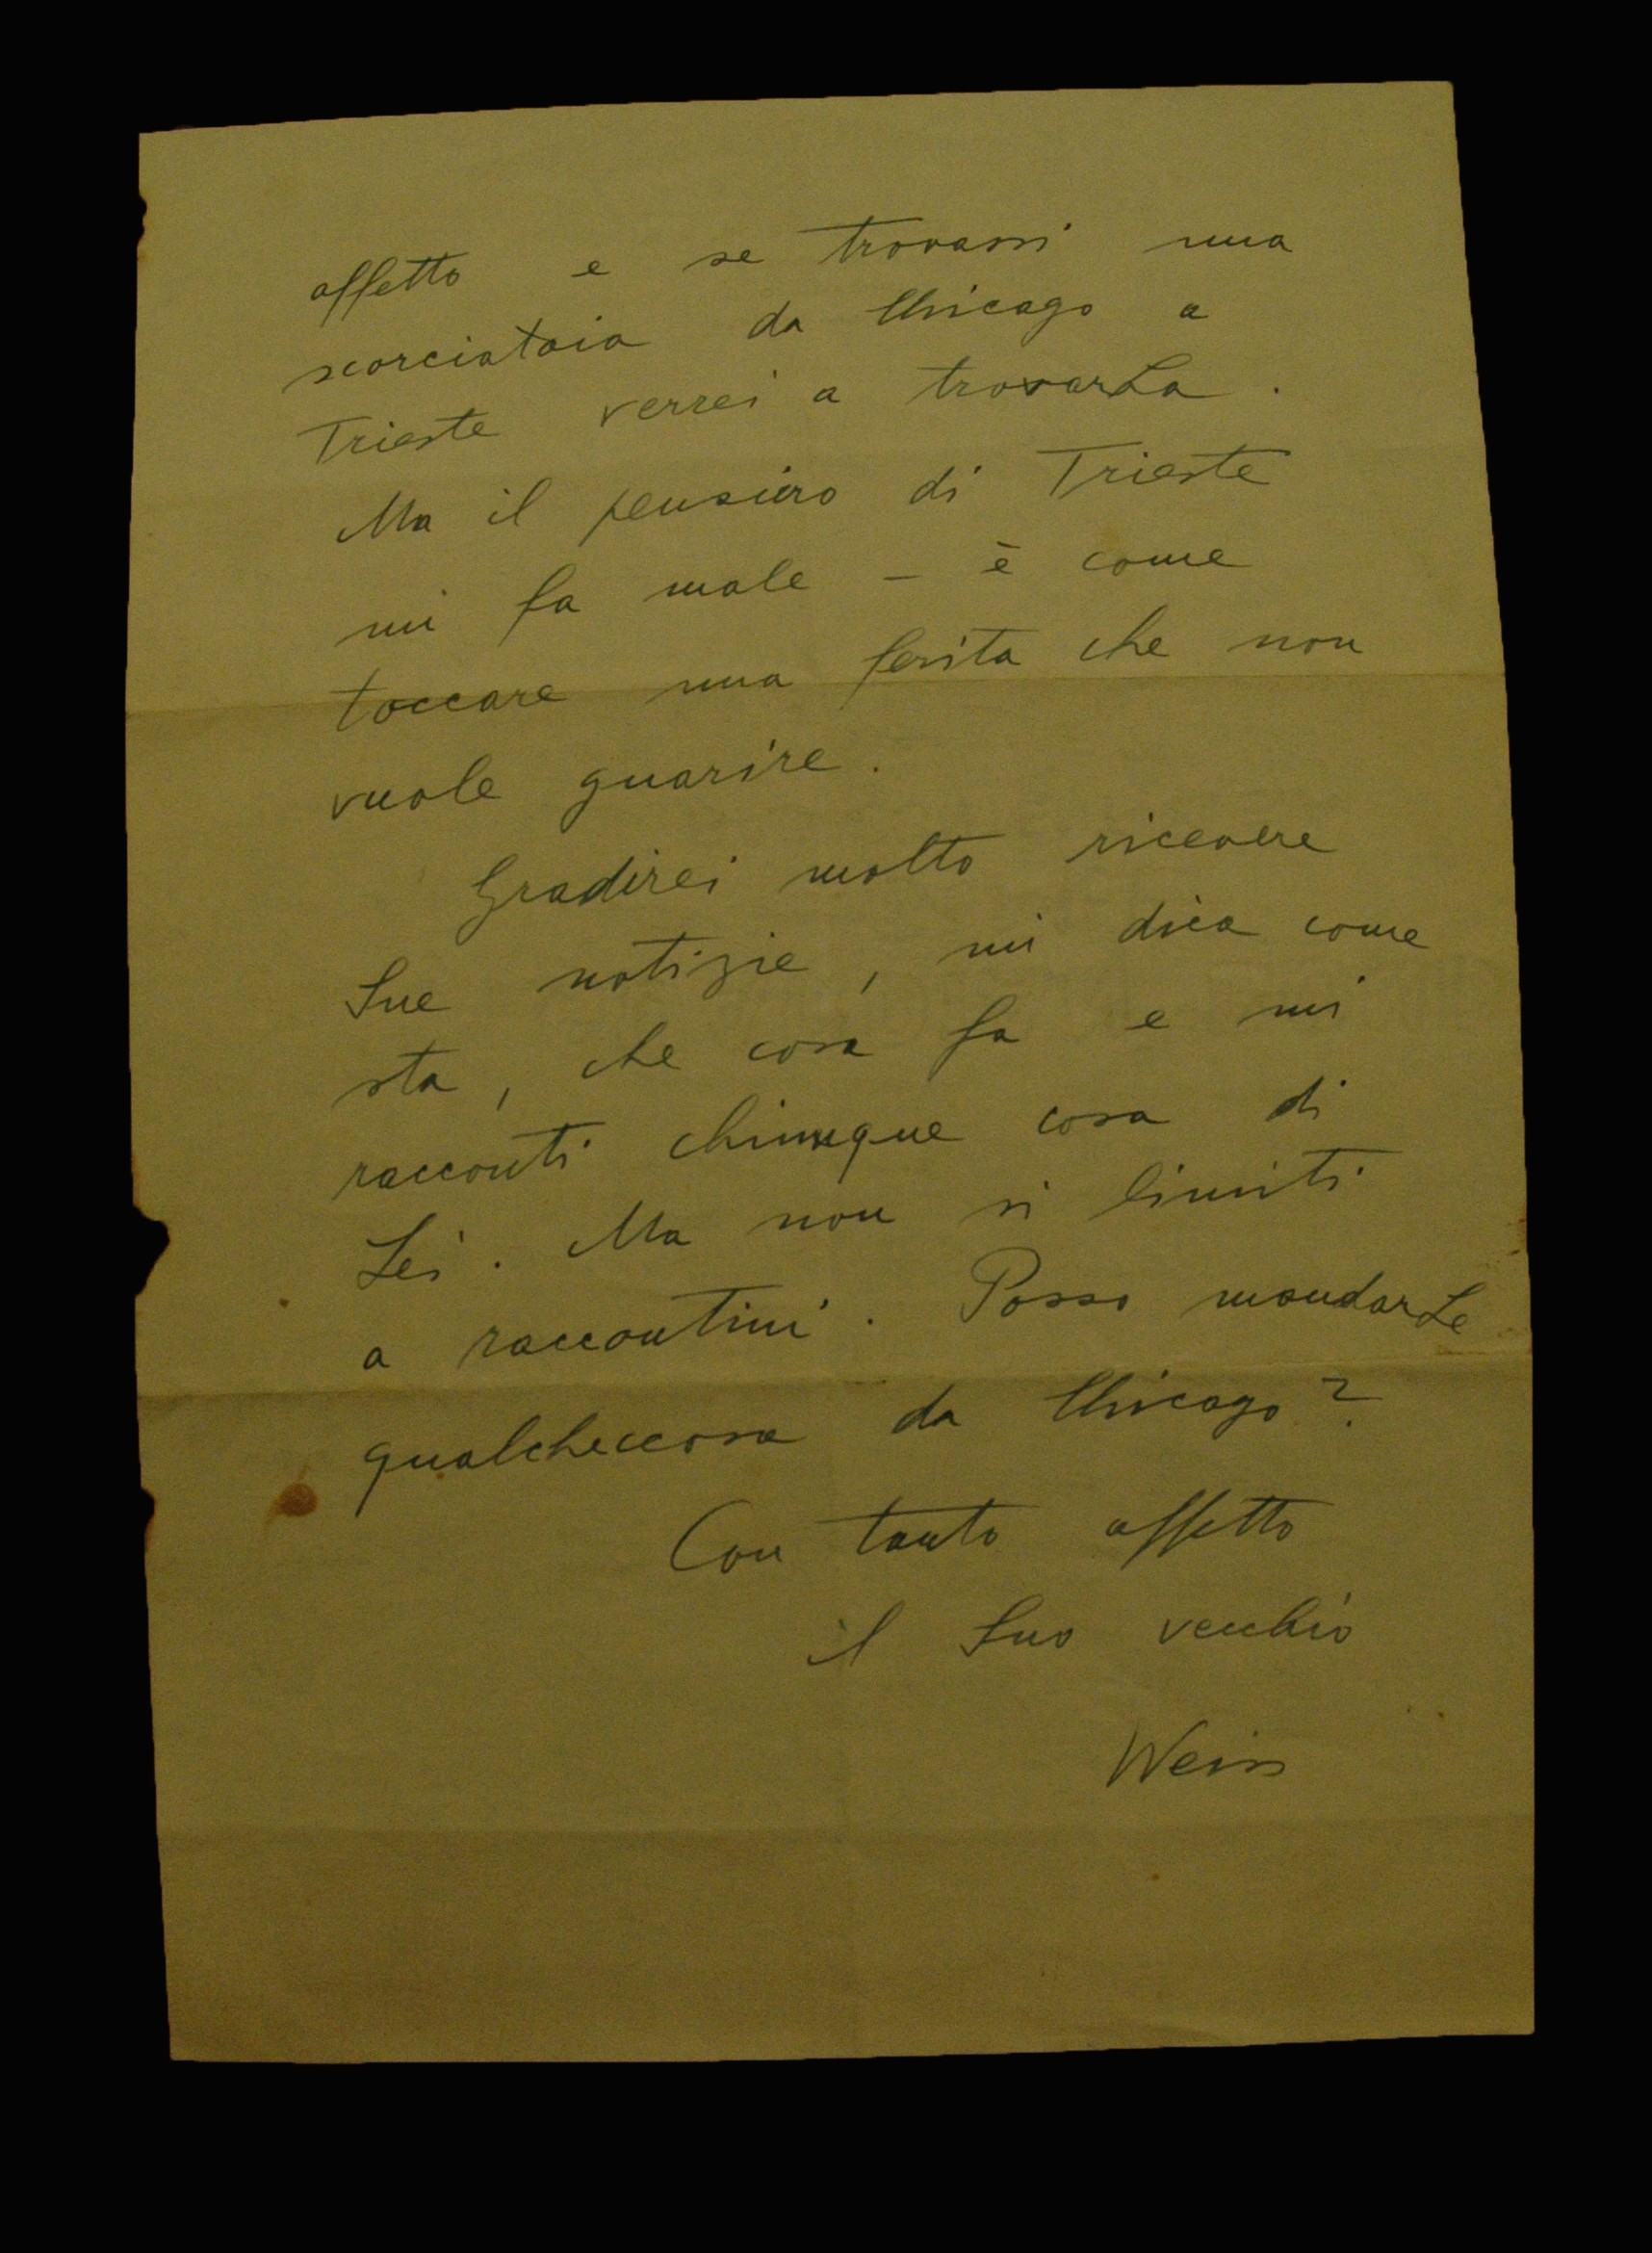 affetto e se trovassi una
scorciatoia da Chicago a
Trieste verrei a trovarLa.
Ma il pensiero di Trieste
mi fa male - è come
toccare una ferita che non
vuole guarire.
Gradirei molto ricevere
Sue notizie, mi dica come
sta, che cosa fa e mi
racconti chiunque cosa di
Lei. Ma non si limiti
a raccontini. Posso mandarLe
qualchecosa da Chicago?
Con tanto affetto
il Suo vecchio
Weiss